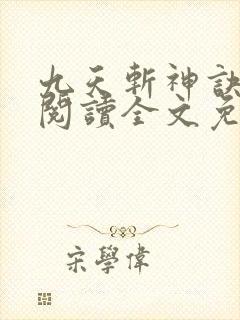 九天斬神訣
閱讀全文免
宋學偉